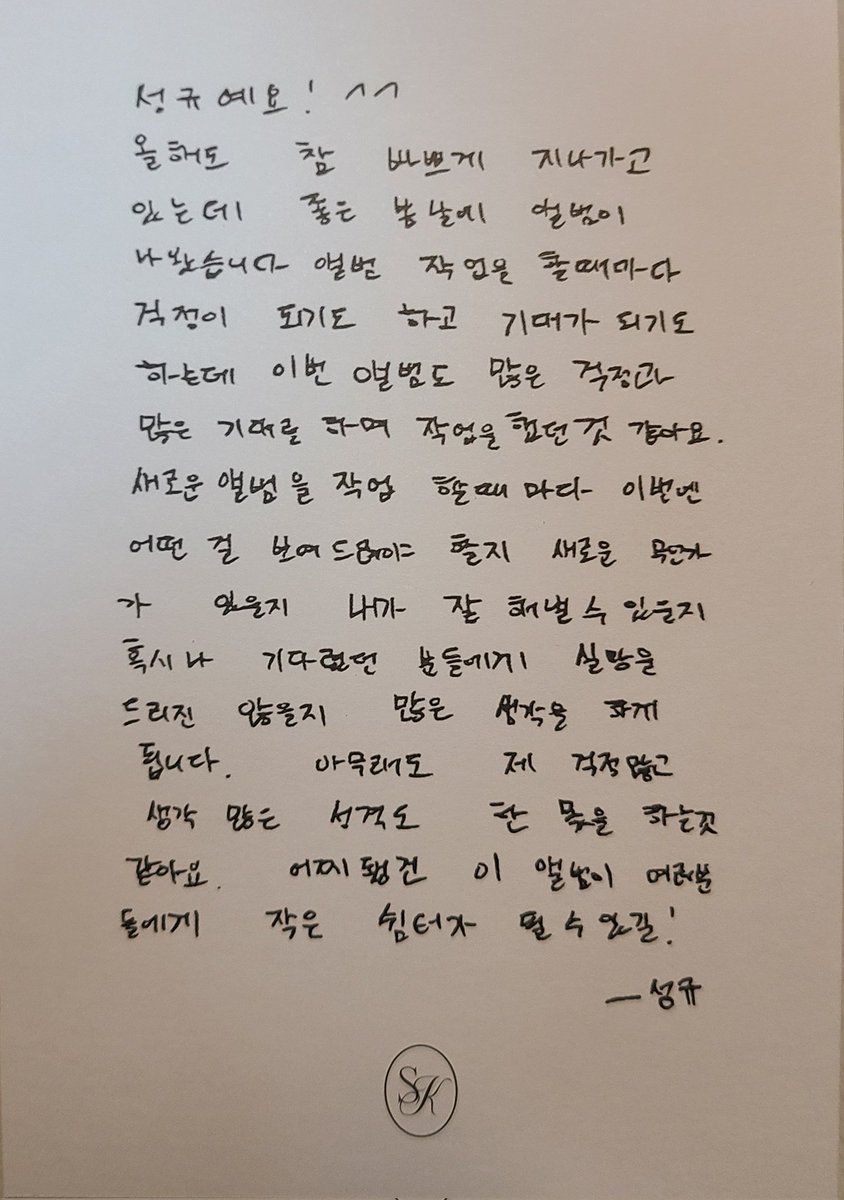 성규예요! ^^
올해도 참 바쁘게 지나가고
있는데 좋은 봄날에 앨범이
나왔습니다 앨범 작업을 할때마다
걱정이 되기도 하고 기대가 되기도
하는데 이번 앨범도 많은 걱정과
많은 기대를 하며 작업을 했던것 같아요.
새로운 앨범을 작업 할때 마다 이번엔
어떤 걸 보여드려야 할지 새로운 무언가
가 있을지 내가 잘 해낼 수 있을지
혹시나 기다렸던 분들에게 실망을
드리진 않을지 많은 생각을 하게
됩니다. 아무래도 제 걱정많고
생각 많은 성격도 한 몫을 하는것
같아요. 어찌됐건 이 앨범이 여러분
들에게 작은 쉼터가 될 수 있길!
—성규
SK